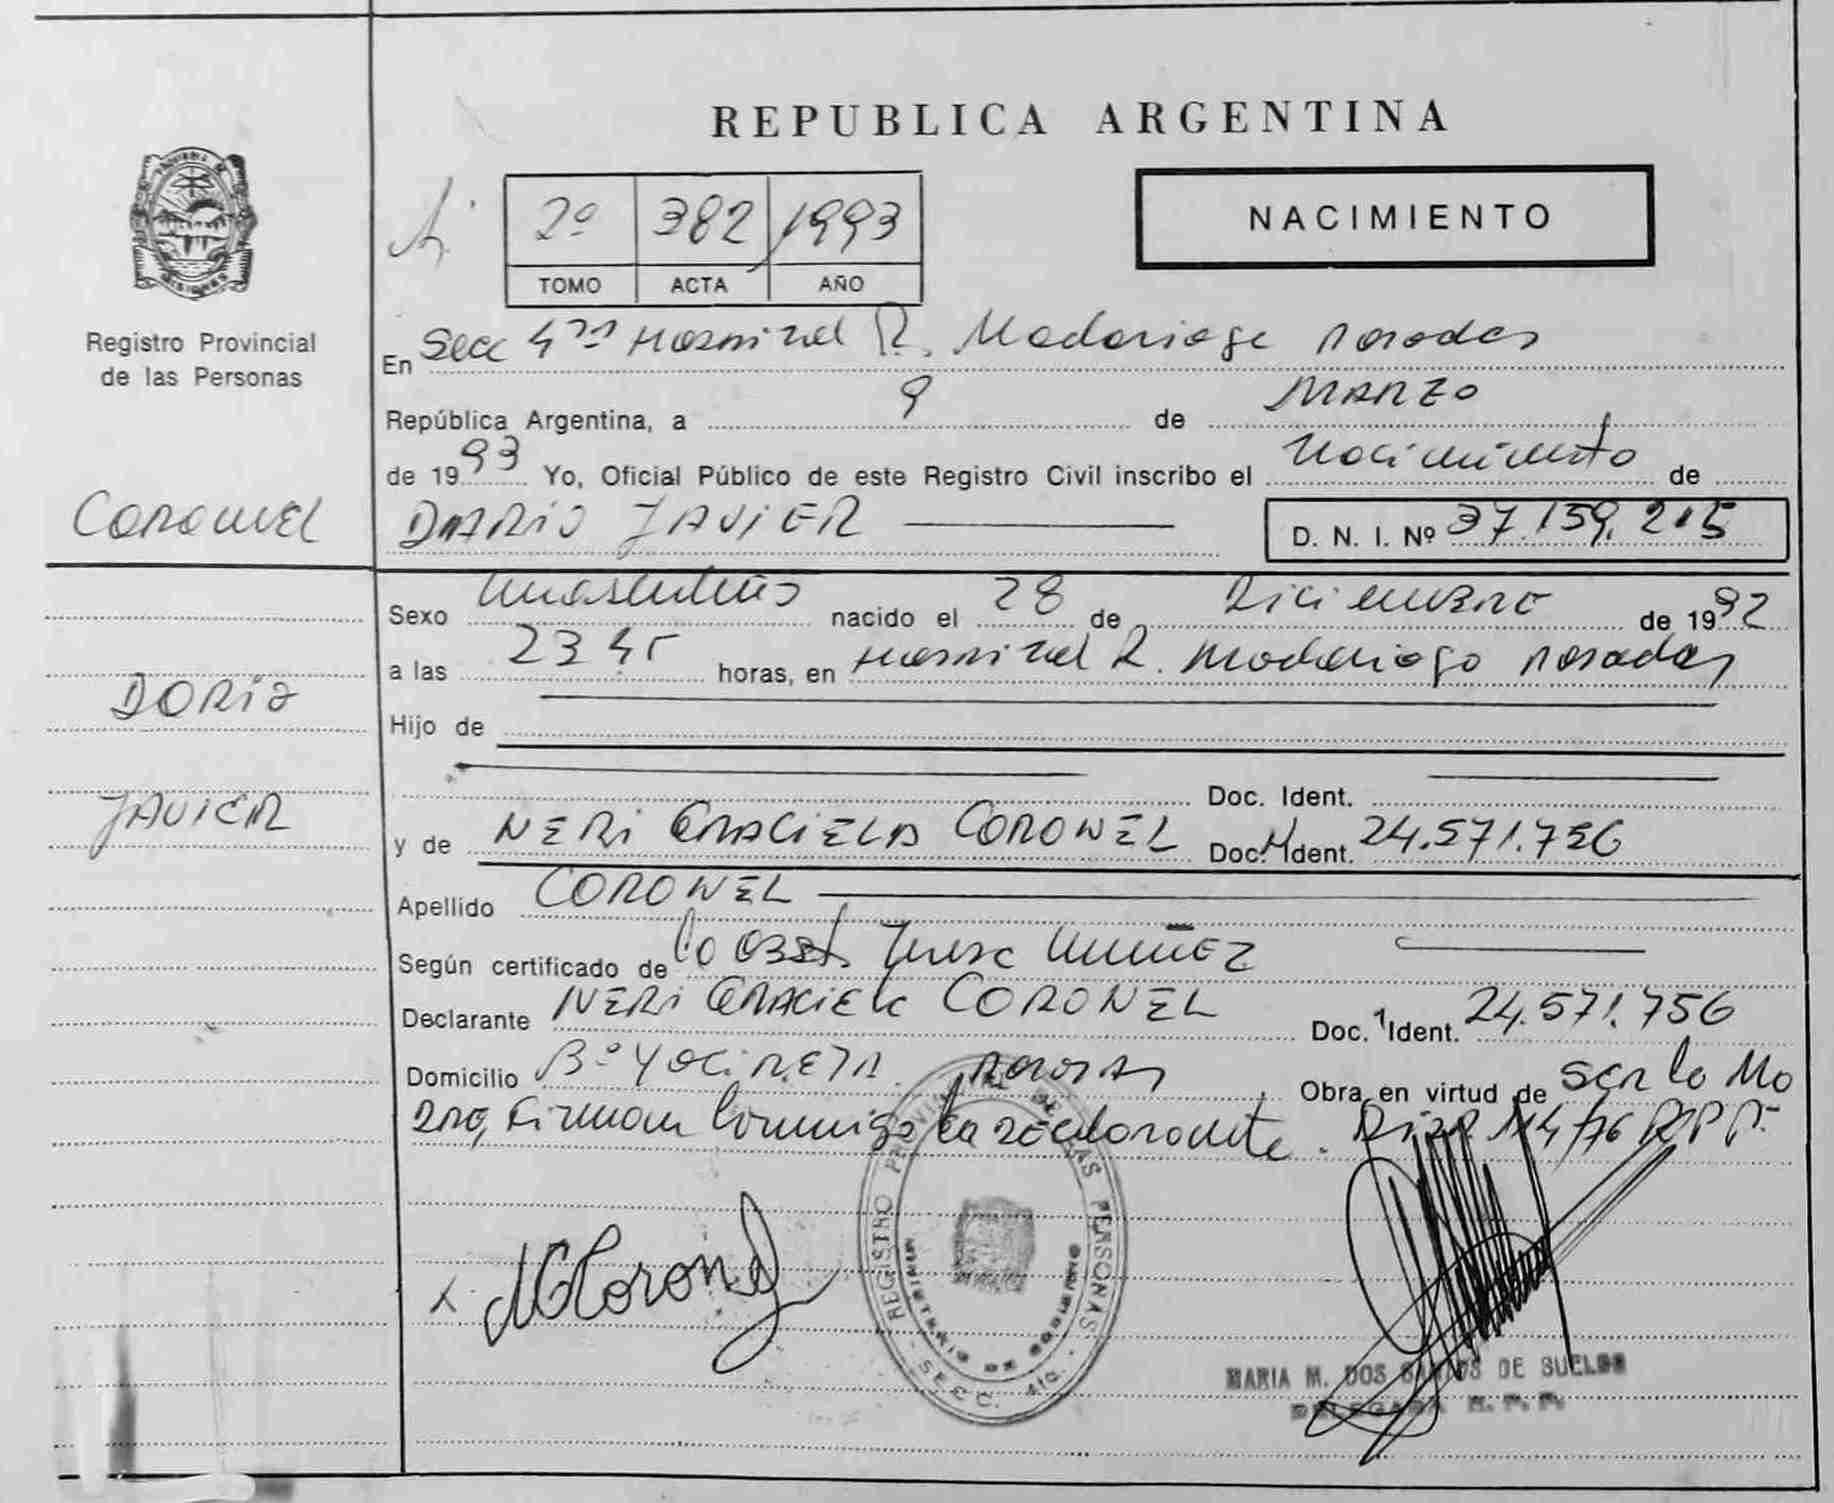 REPUBLICA ARGENTINA
NACIMIENTO
2º 382 1993
TOMO ACTA AÑO
Registro Provincial
de las Personas
En Secc 4ta Hospital R. Madariaga Posadas
República Argentina, a 9 de MARZO
de 1993 Yo, Oficial Público de este Registro Civil inscribo el Nacimiento de
CORONEL
DARIO JAVIER
D. N. I. Nº 37.159.215
Sexo Masculino nacido el 28 de Diciembre de 1992
a las 23 45 horas, en Hospital R. Madariaga Posadas
DARIO
Hijo de
Doc. Ident.
JAVIER
y de NERI GRACIELA CORONEL Doc. Ident. 24.571.756
Apellido CORONEL
Según certificado de la Obst Teresa MUÑEZ
Declarante NERI GRACIELA CORONEL Doc. Ident. 24.571.756
Domicilio Bº YACIRETA Posadas Obra en virtud de ser la Ma
dre, Firman conmigo la declarante. Disp 114/76 RPP.
N G Coronel
REGISTRO PROVINCIAL DE LAS PERSONAS
MINISTERIO DE GOBIERNO
SECC. 4ta.
MARIA M. DOS SANTOS DE SUELDO
DELEGADA R. P. P.